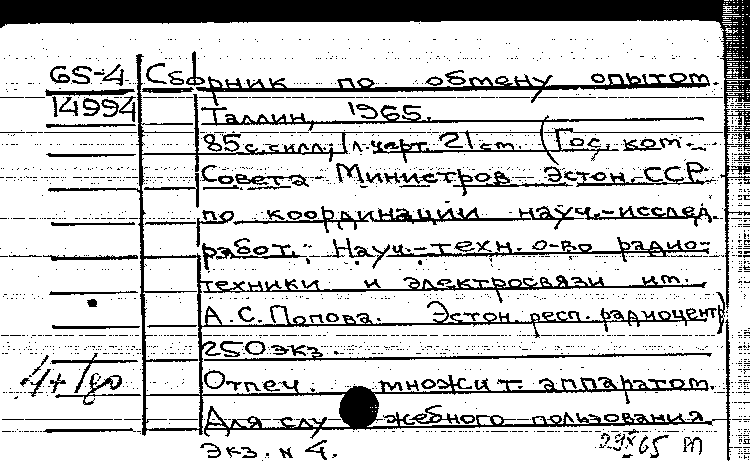 65-4 Сборник по обмену опытом.
14994 Таллин, 1965.
85 с. силл; 1 л. черт. 21 ст. (Гос. ком.
Совета Министров Эстон. ССР
по координации науч.-исслед.
работ. Науч.-техн. о-во радио-
техники и электросвязи им.
А. С. Попова. Эстон. респ. радиоцентр)
250 экз.
Отпеч. множит. аппаратом.
Для служебного пользования.
Экз. N 4.
65